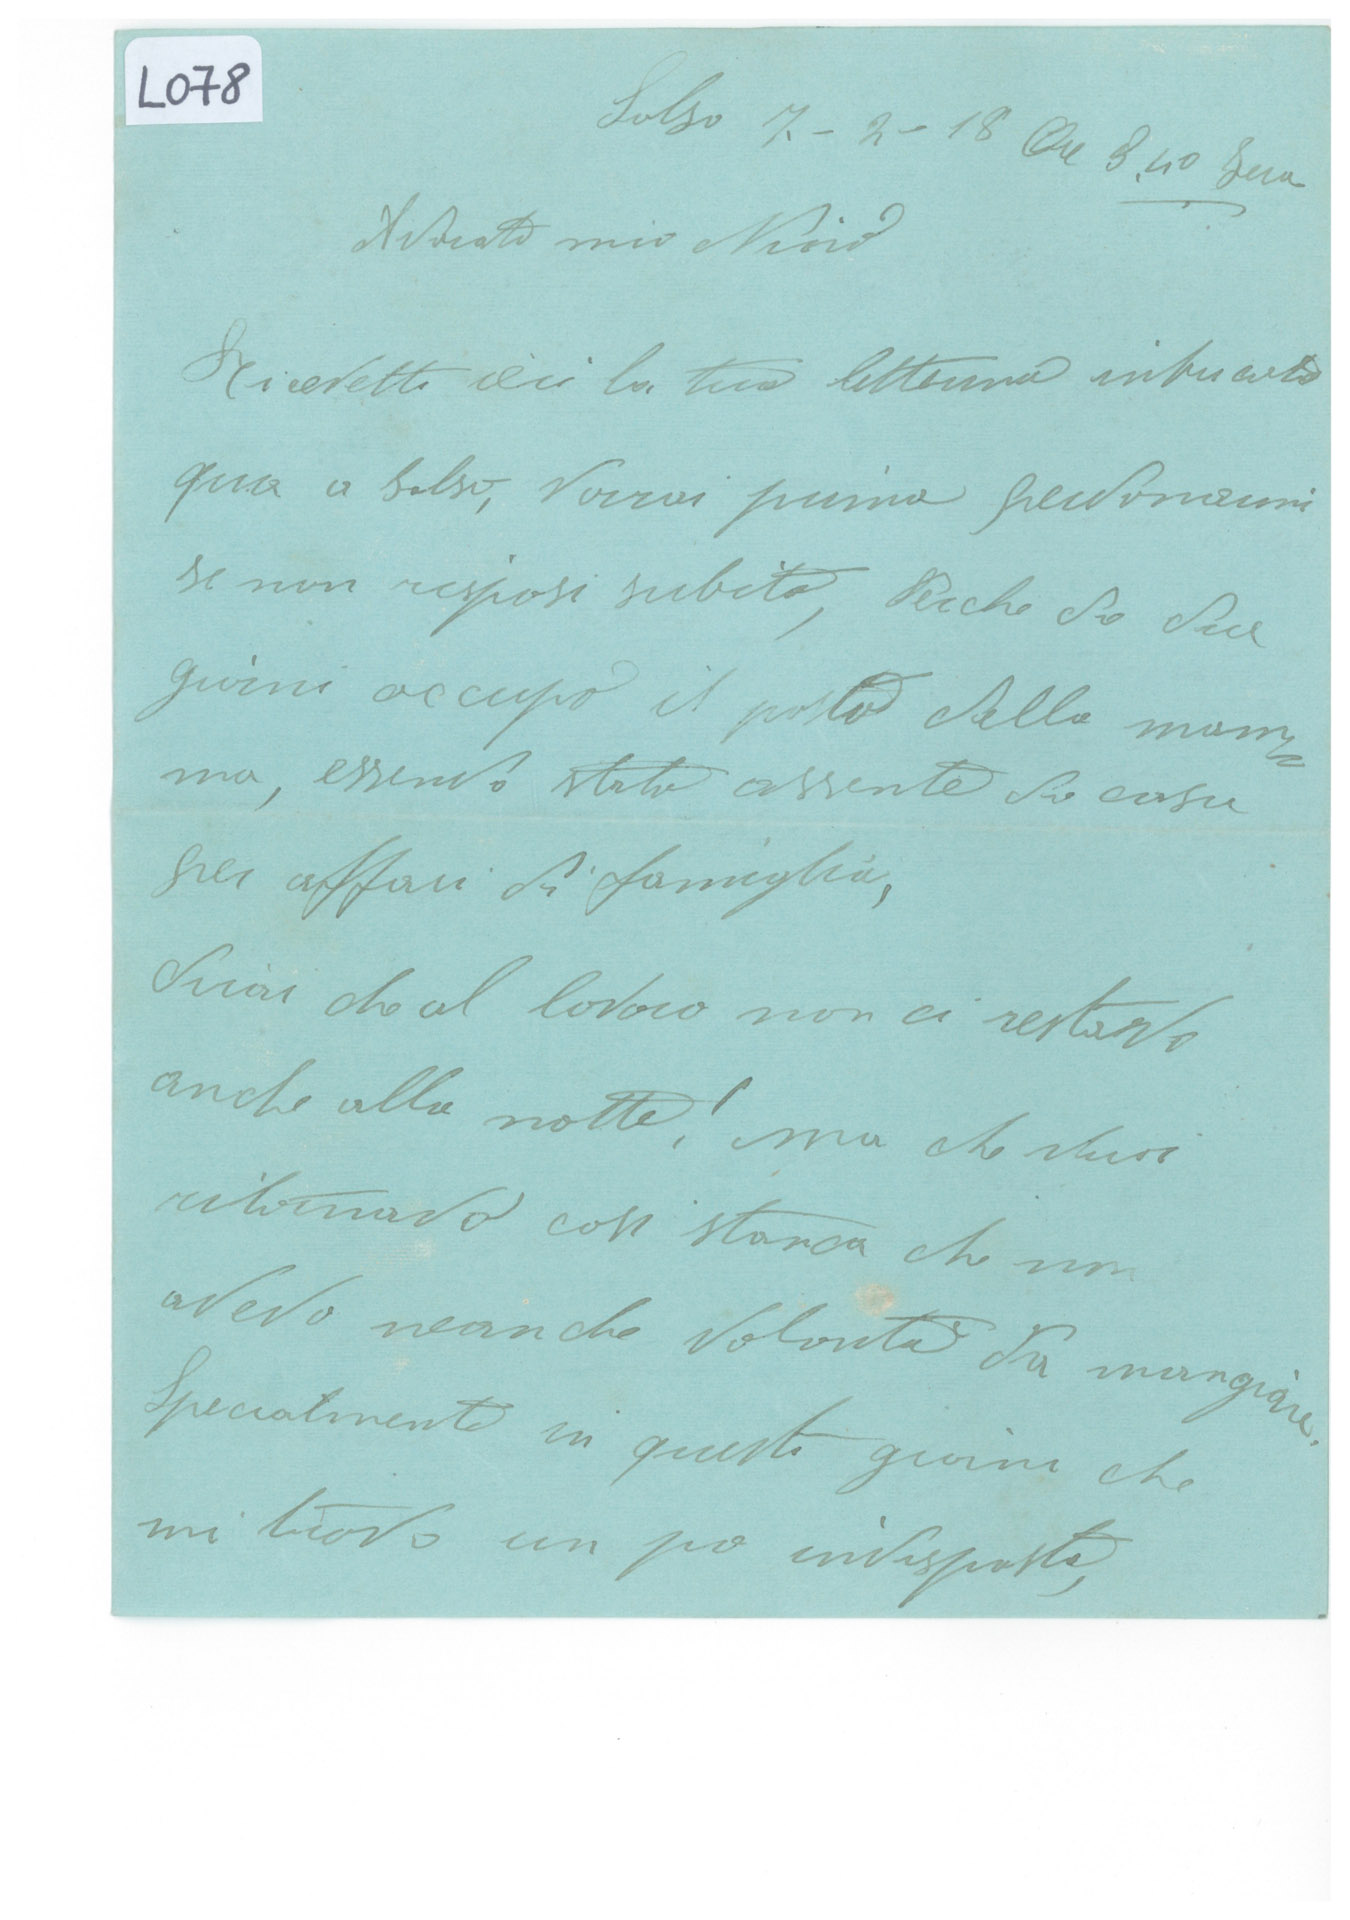 L078
Salso 7-2-18 Ore 8.40 Sera
Adorato mio
Ricevetti ieri la tua letterina imbucata
qua a Salso, vorrai prima perdonarmi
se non risposi subito, Perche da due
giorni occupo il posto della mam
ma, essendo stata assente da casa
per affari di famiglia,
Dirai che al lavoro non ci restavo
anche alla notte! ma che vuoi
ritornavo cosi stanca che non
avevo neanche volonta da mangiare.
Specialmente in questi giorni che
mi trovo un po indisposta,